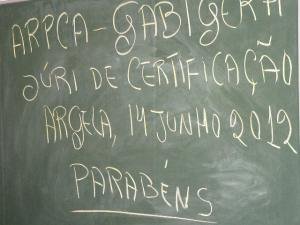 ARPCA - GABIGERH
JÚRI DE CERTIFICAÇÃO
ARGELA, 14 JUNHO 2012
PARABÉNS